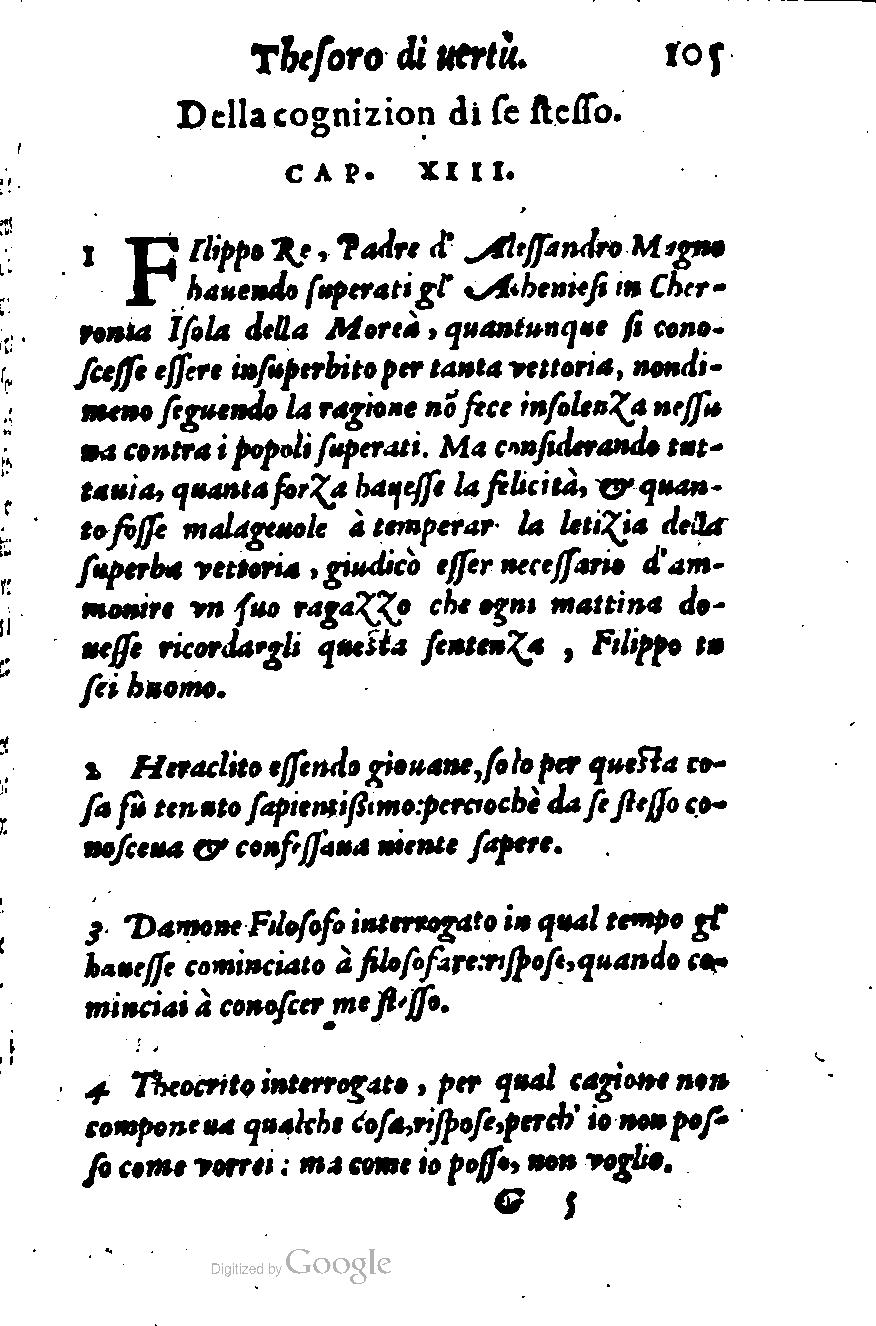 Theſoro di uertù. 105
Della cognizion di ſe ſteſſo.
CAP. XIII.
1 FIlippo Re, Padre d' Aleſſandro Magno
hauendo ſuperati gl' Atheniеſi in Cher-
ronia Iſola della Moreà, quantunque ſi cono-
ſceſſe eſſere inſuperbito per tanta vettoria, nondi-
meno ſeguendo la ragione nõ fece inſolenza neſſu
na contra i popoli ſuperati. Ma conſiderando tut-
tauia, quanta forza haueſſe la felicità, & quan-
to foſſe malageuole à temperar la letizia della
ſuperba vettoria, giudicò eſſer neceſſario d'am-
monire vn ſuo ragazzo che ogni mattina do-
ueſſe ricordargli queſta ſentenza, Filippo tu
ſei huomo.
2 Heraclito eſſendo giouane, ſolo per queſta co-
ſa fù tenuto ſapientißimo: perciochè da ſe ſteſſo co-
noſceua & confeſſaua niente ſapere.
3 Damone Filoſofo interrogato in qual tempo gl'
haueſſe cominciato à filoſofare: riſpoſe, quando co-
minciai à conoſcer me ſteſſo.
4 Theocrito interrogato, per qual cagione non
componeua qualche coſa, riſpoſe, perch' io non poſ-
ſo come vorrei: ma come io poſſo, non voglio.
G 5
Digitized by Google